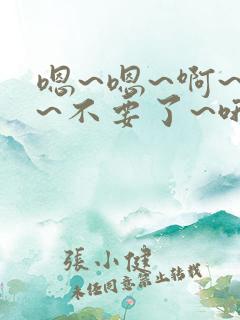 嗯~嗯~啊~
~不要了~
張小健
未经同意禁止转载